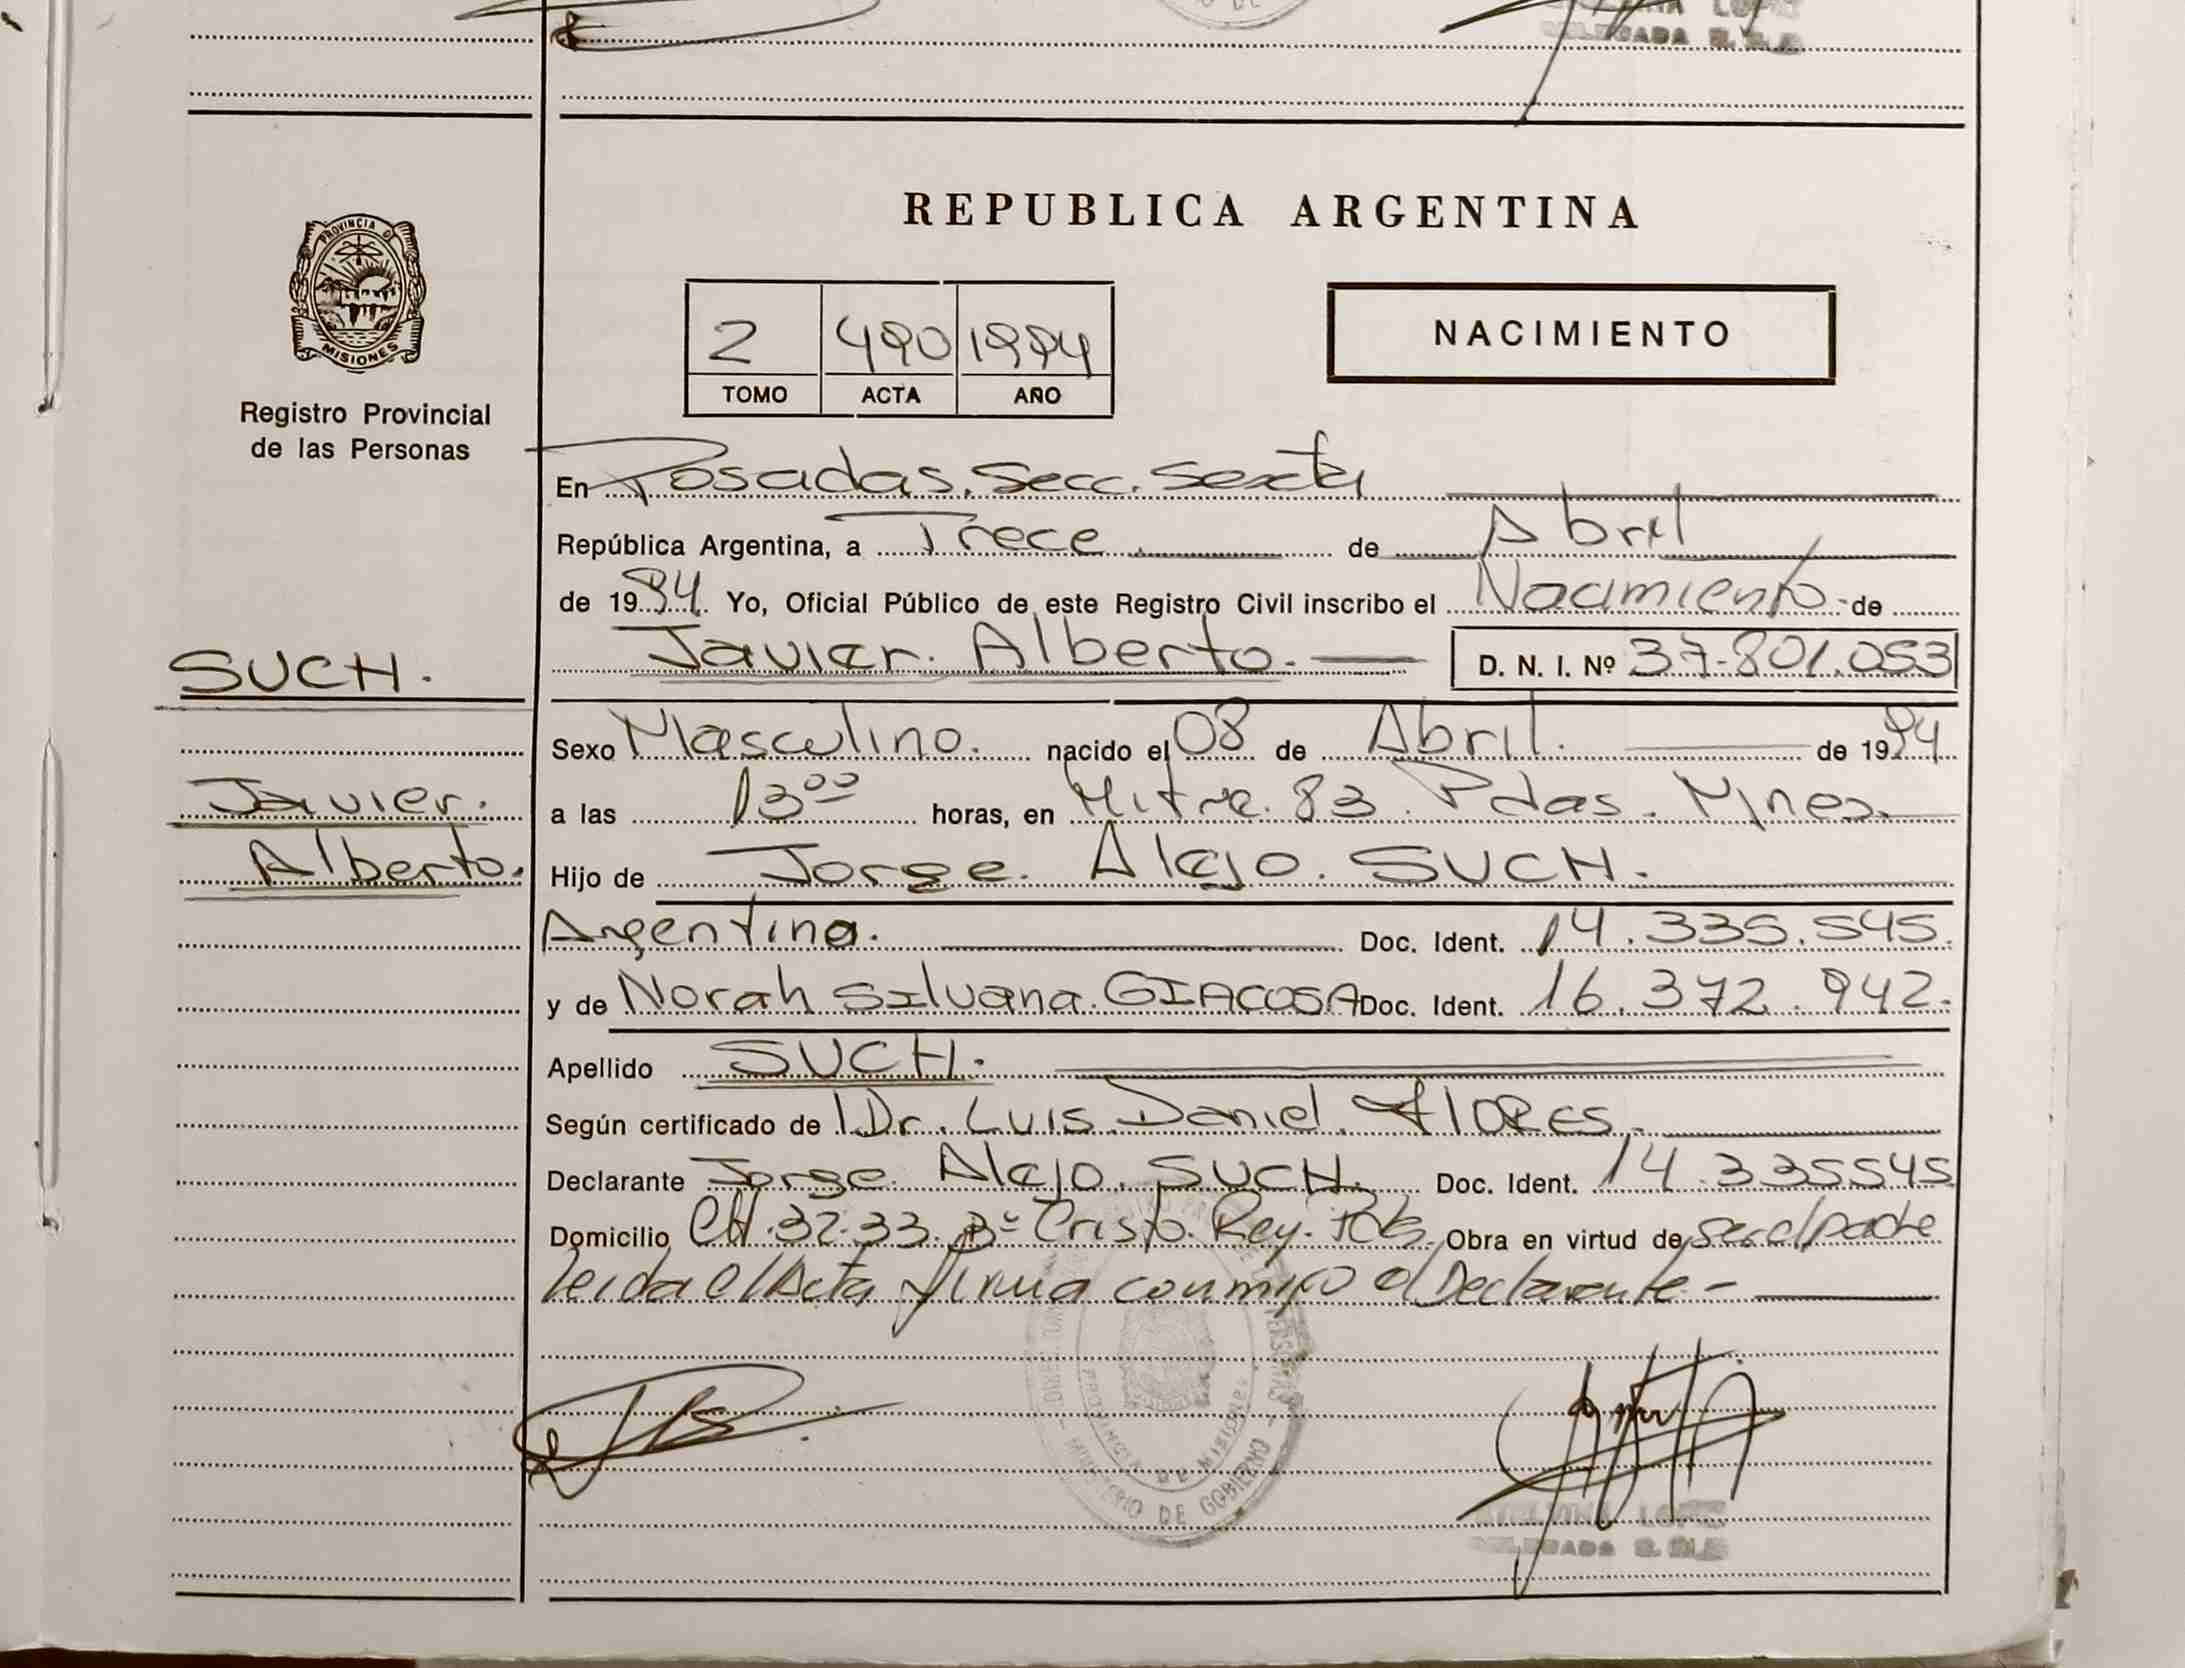 LOPEZ
DELEGADA
REPUBLICA ARGENTINA
PROVINCIA D
MISIONES
Registro Provincial
de las Personas
2 490 1994
TOMO ACTA AÑO
NACIMIENTO
En Posadas. Secc. Sexta
República Argentina, a Trece de Abril
de 1994. Yo, Oficial Público de este Registro Civil inscribo el Nacimiento de
Javier. Alberto. D. N. I. Nº 37.801.053
SUCH.
Sexo Masculino. nacido el 08 de Abril. de 1994
Javier.
a las 13ºº horas, en Mitre. 83. Pdas. Mnes.
Alberto.
Hijo de Jorge. Alejo. SUCH.
Argentina. Doc. Ident. 14.335.545.
y de Norah Silvana. GIACOSA Doc. Ident. 16.372.942.
Apellido SUCH.
Según certificado de Dr. Luis Daniel. Flores.
Declarante Jorge Alejo. SUCH. Doc. Ident. 14.335545
Domicilio CH.32-33. Bº Cristo. Rey. Obra en virtud de ser el padre
leida el Acta firma conmigo el Declarante.-
MINISTERIO DE GOBIERNO
PROVINCIA DE MISIONES
LOPEZ
DELEGADA